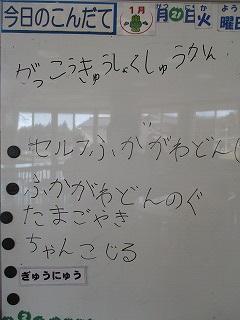 今日のこんだて 1月 27日 火曜日
がっこうきゅうしょくしゅうかん
セルフふかがわどんぶ
ふかがわどんのぐ
たまごやき
ちゃんこじる
ぎゅうにゅう